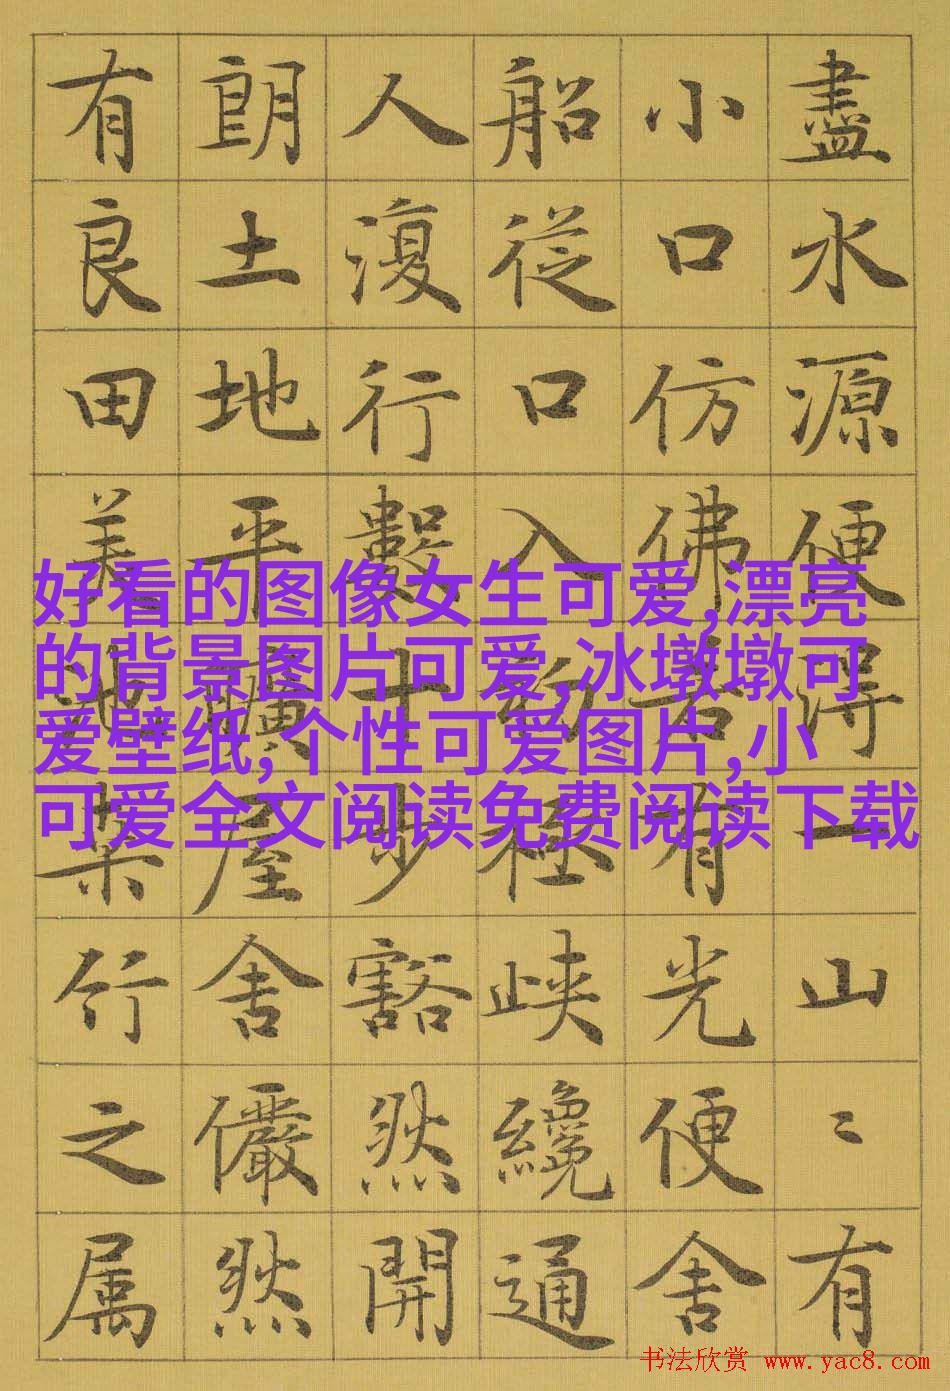 盡水源便得一山〻有
小口仿佛若有光便舍
船從口入初極峽纔通
人復行數十步豁然開
朗土地平曠屋舍儼然
有良田美池桑竹之属
好看的图像女生可爱,漂亮
的背景图片可爱,冰墩墩可
爱壁纸,个性可爱图片,小
可爱全文阅读免费阅读下载
书法欣赏 www.yac8.com